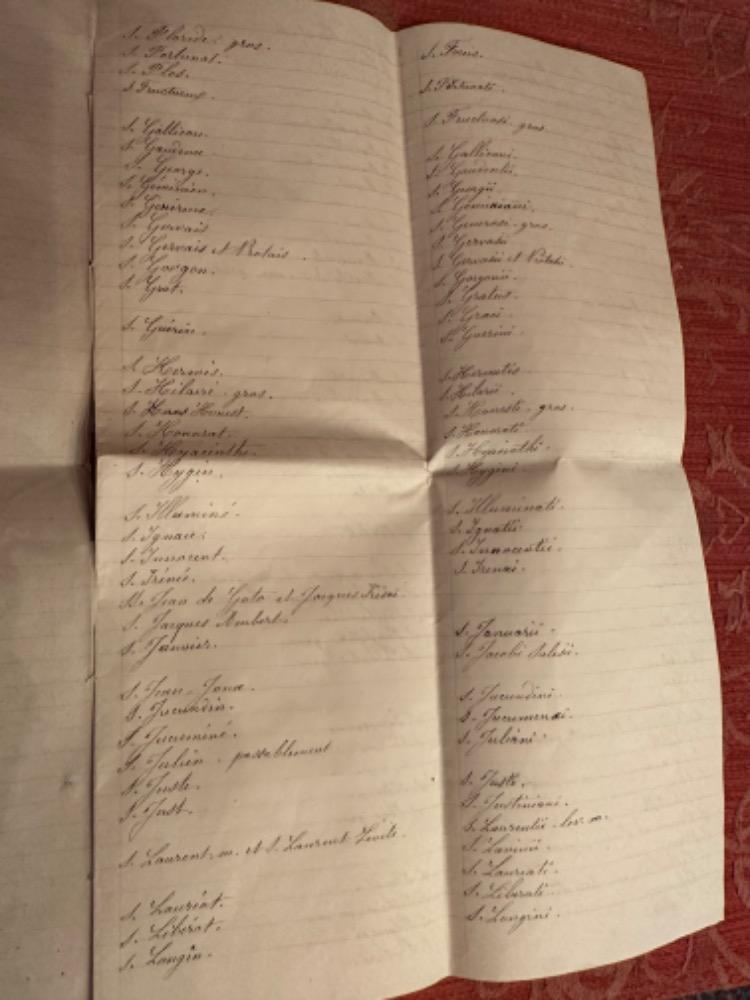 S. Floride. gros.
S. Fortunat.
S. Flos.
S. Fructueux.
S. Gallican.
S. Gaudence
S. George.
S. Géminien.
S. Généreux.
S. Gervais
S. Gervais et Protais.
S. Gorgon.
S. Grat.
S. Guérin.
S. Hermès.
S. Hilaire. gros.
S. Honest.
S. Honorat.
S. Hyacinthe.
S. Hygin.
S. Illuminé.
S. Ignace.
S. Innocent.
S. Iréné.
SS. Jean de Goto et Jacques
S. Jacques Ambert.
S. Janvier.
S. Jean
S. Jucundin.
S. Jucuminé.
S. Julien. passablement
S. Juste.
S. Just.
S. Laurent. m. et S. Laurent Lévite.
S. Lauréat.
S. Libérat.
S. Longin.
S. Fructuosi. gros.
S. Gallicani.
S. Gaudentii.
S. Georgii.
S. Generosi. gros.
S. Gervasii
S. Gervasii et Protasi.
S. Gorgonii.
S. Gratus.
S. Grati.
S. Guerini.
S. Hermetis.
S. Hilarii.
S. Honeste. gros.
S. Honorati.
S. Hyacinthi.
S. Hygini
S. Illuminati.
S. Ignatii.
S. Innocentii.
S. Irenei.
S. Januarii.
S. Jacobi Salesii.
S. Jucundini.
S. Juliani.
S. Juste.
S. Justiniani.
S. Laurentii. lev. m.
S. Laureati.
S. Liberati.
S. Longini.